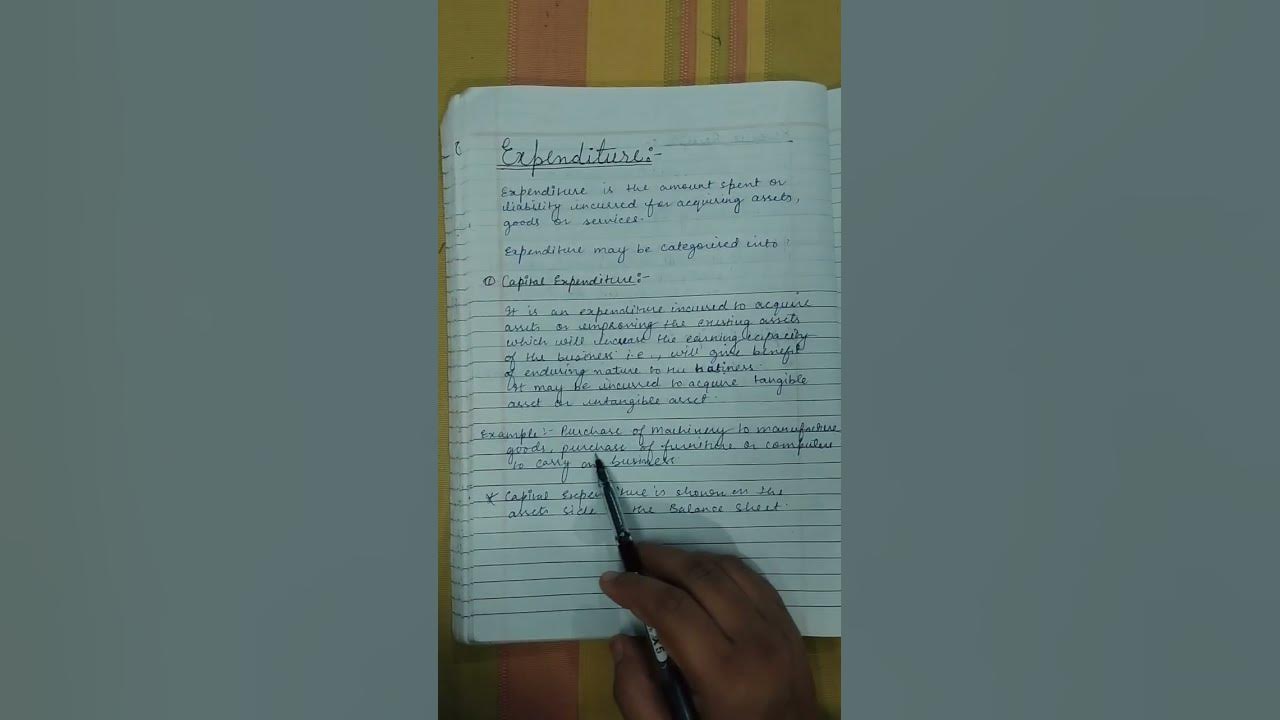 Expenditure:-
Expenditure is the amount spent or
liability incurred for acquiring assets,
goods or services.
Expenditure may be categorised into:
① Capital Expenditure:-
It is an expenditure incurred to acquire
assets or improving the existing assets
which will increase the earning capacity
of the business i.e., will give benefit
of enduring nature to the business.
It may be incurred to acquire tangible
asset or intangible asset.
Example:- Purchase of Machinery to manufacture
goods, purchase of furniture or computer
to carry on business
* Capital Expenditure is shown on the
assets side the Balance Sheet.
X5